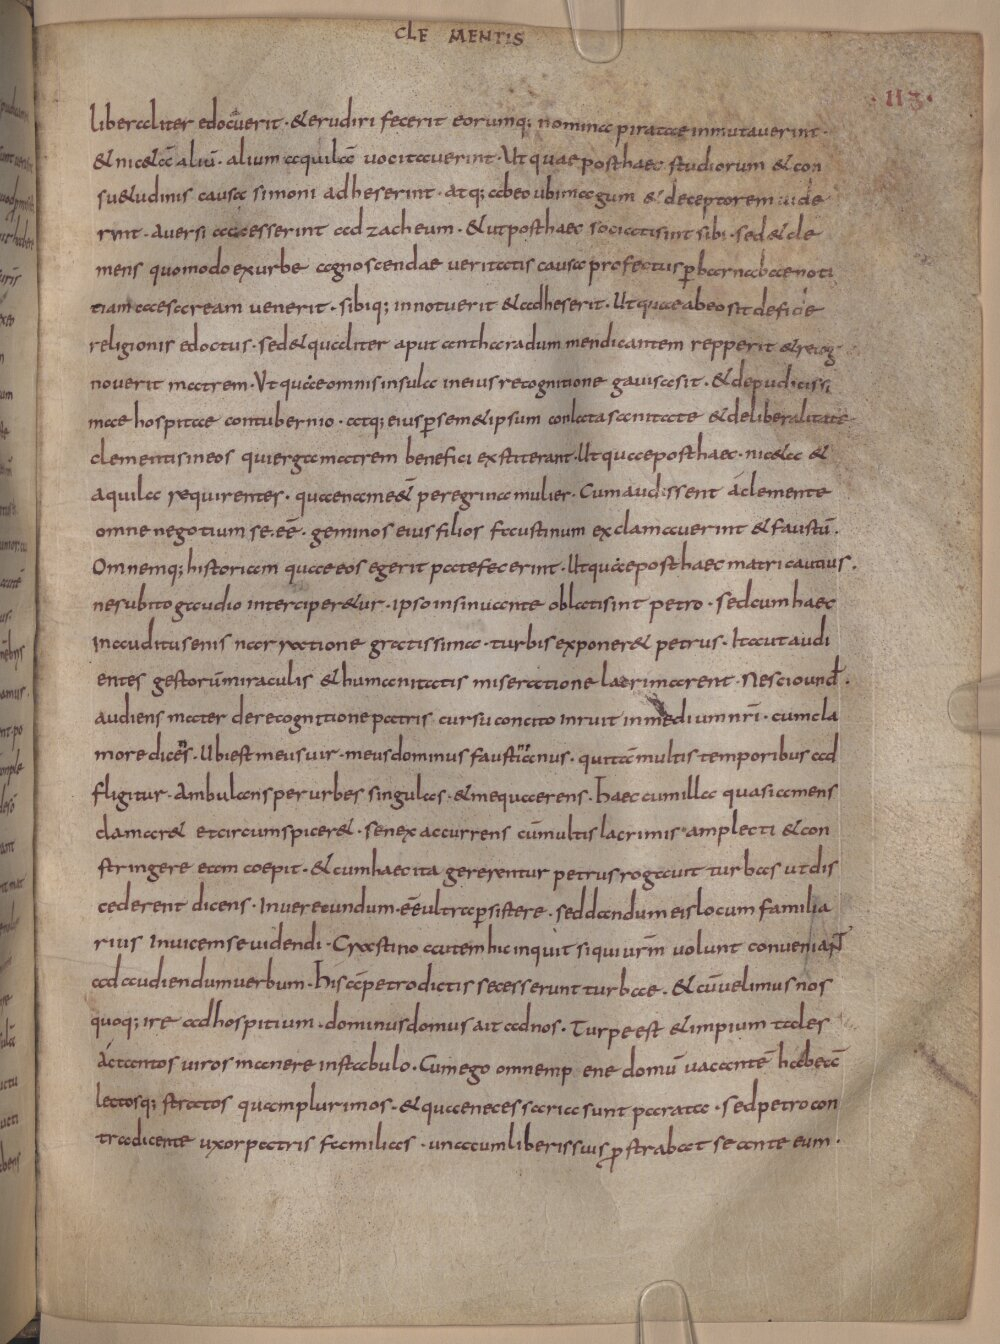 CLE MENTIS
· 113 ·
liberaliter edocuerit · & erudiri fecerit eorumq; nomina piratae inmutauerint ·
& nic&ā aliū · alium aquilā uocitauerint · Ut quae posthaec studiorum & con
su&udinis causa simoni adheserint · atq; abeo ubi magum & deceptorem uide
runt · auersi accesserint ad zacheum · & ut posthaec sociati sint sibi · sed & cle
mens quomodo exurbe agnoscendae ueritatis causa profectus p barnabae noti
tiam caesaream uenerit · sibiq; innotuerit & adheserit · Ut quae abeo sit de fide
religionis edoctus · sed & qualiter aput antharadum mendicantem repperit & recog
nouerit matrem · Ut quae omnis insula ineius recognitione gauisa sit · & depudicissi
mae hospitae contubernio · atq; eius p sem&ipsum conlata sanitate & deliberalitate
clementis ineos qui erga matrem benefici exstiterant · Ut quae posthaec · nic&a &
aquila requirentes · quaenam eēt peregrina mulier · Cum audissent a clemente
omne negotium se · eē · geminos eius filios faustinum exclamauerint & faustū ·
Omnemq; historiam quae eos egerit patefecerint · Ut quae posthaec matri cautius ·
ne subito gaudio interciper&ur · ipso insinuante oblati sint petro · sed cum haec
inauditu senis narratione gratissima · turbis exponer& petrus · Ita ut audi
entes gestorū miraculis & humanitatis miseratione lacrimarent · Nescio und ·
audiens mater de recognitione patris cursu concito inruit in medium nr̄i · cum cla
more dicens · Ubi est meus uir · meus dominus faustinianus · qui tā multis temporibus ad
fligitur · Ambulans per urbes singulas · & me quaerens · Haec cum illa quasi amens
clamar& et circumspicer& · senex accurrens cū multis lacrimis amplecti & con
stringere eam coepit · & cum haec ita gererentur petrus rogauit turbas ut dis
cederent dicens · Inuerecundum · eē ultra p sistere · sed dandum eis locum familia
rius inuicem se uidendi · Crastino autem hic inquit si qui ur̄m uolunt conueniant
ad audiendum uerbum · His a petro dictis secesserunt turbae · & cū uelimus nos
quoq; ire ad hospitium · dominus domus ait ad nos · Turpe est & impium tales
ac tantos uiros manere in stabulo · Cum ego omnem p ene domū uacantē habeā
lectosq; stratos quam plurimos · & quae necessaria sunt parata · sed petro con
tradicente uxor patris familias · una cum liberis suis p strabat se ante eum ·